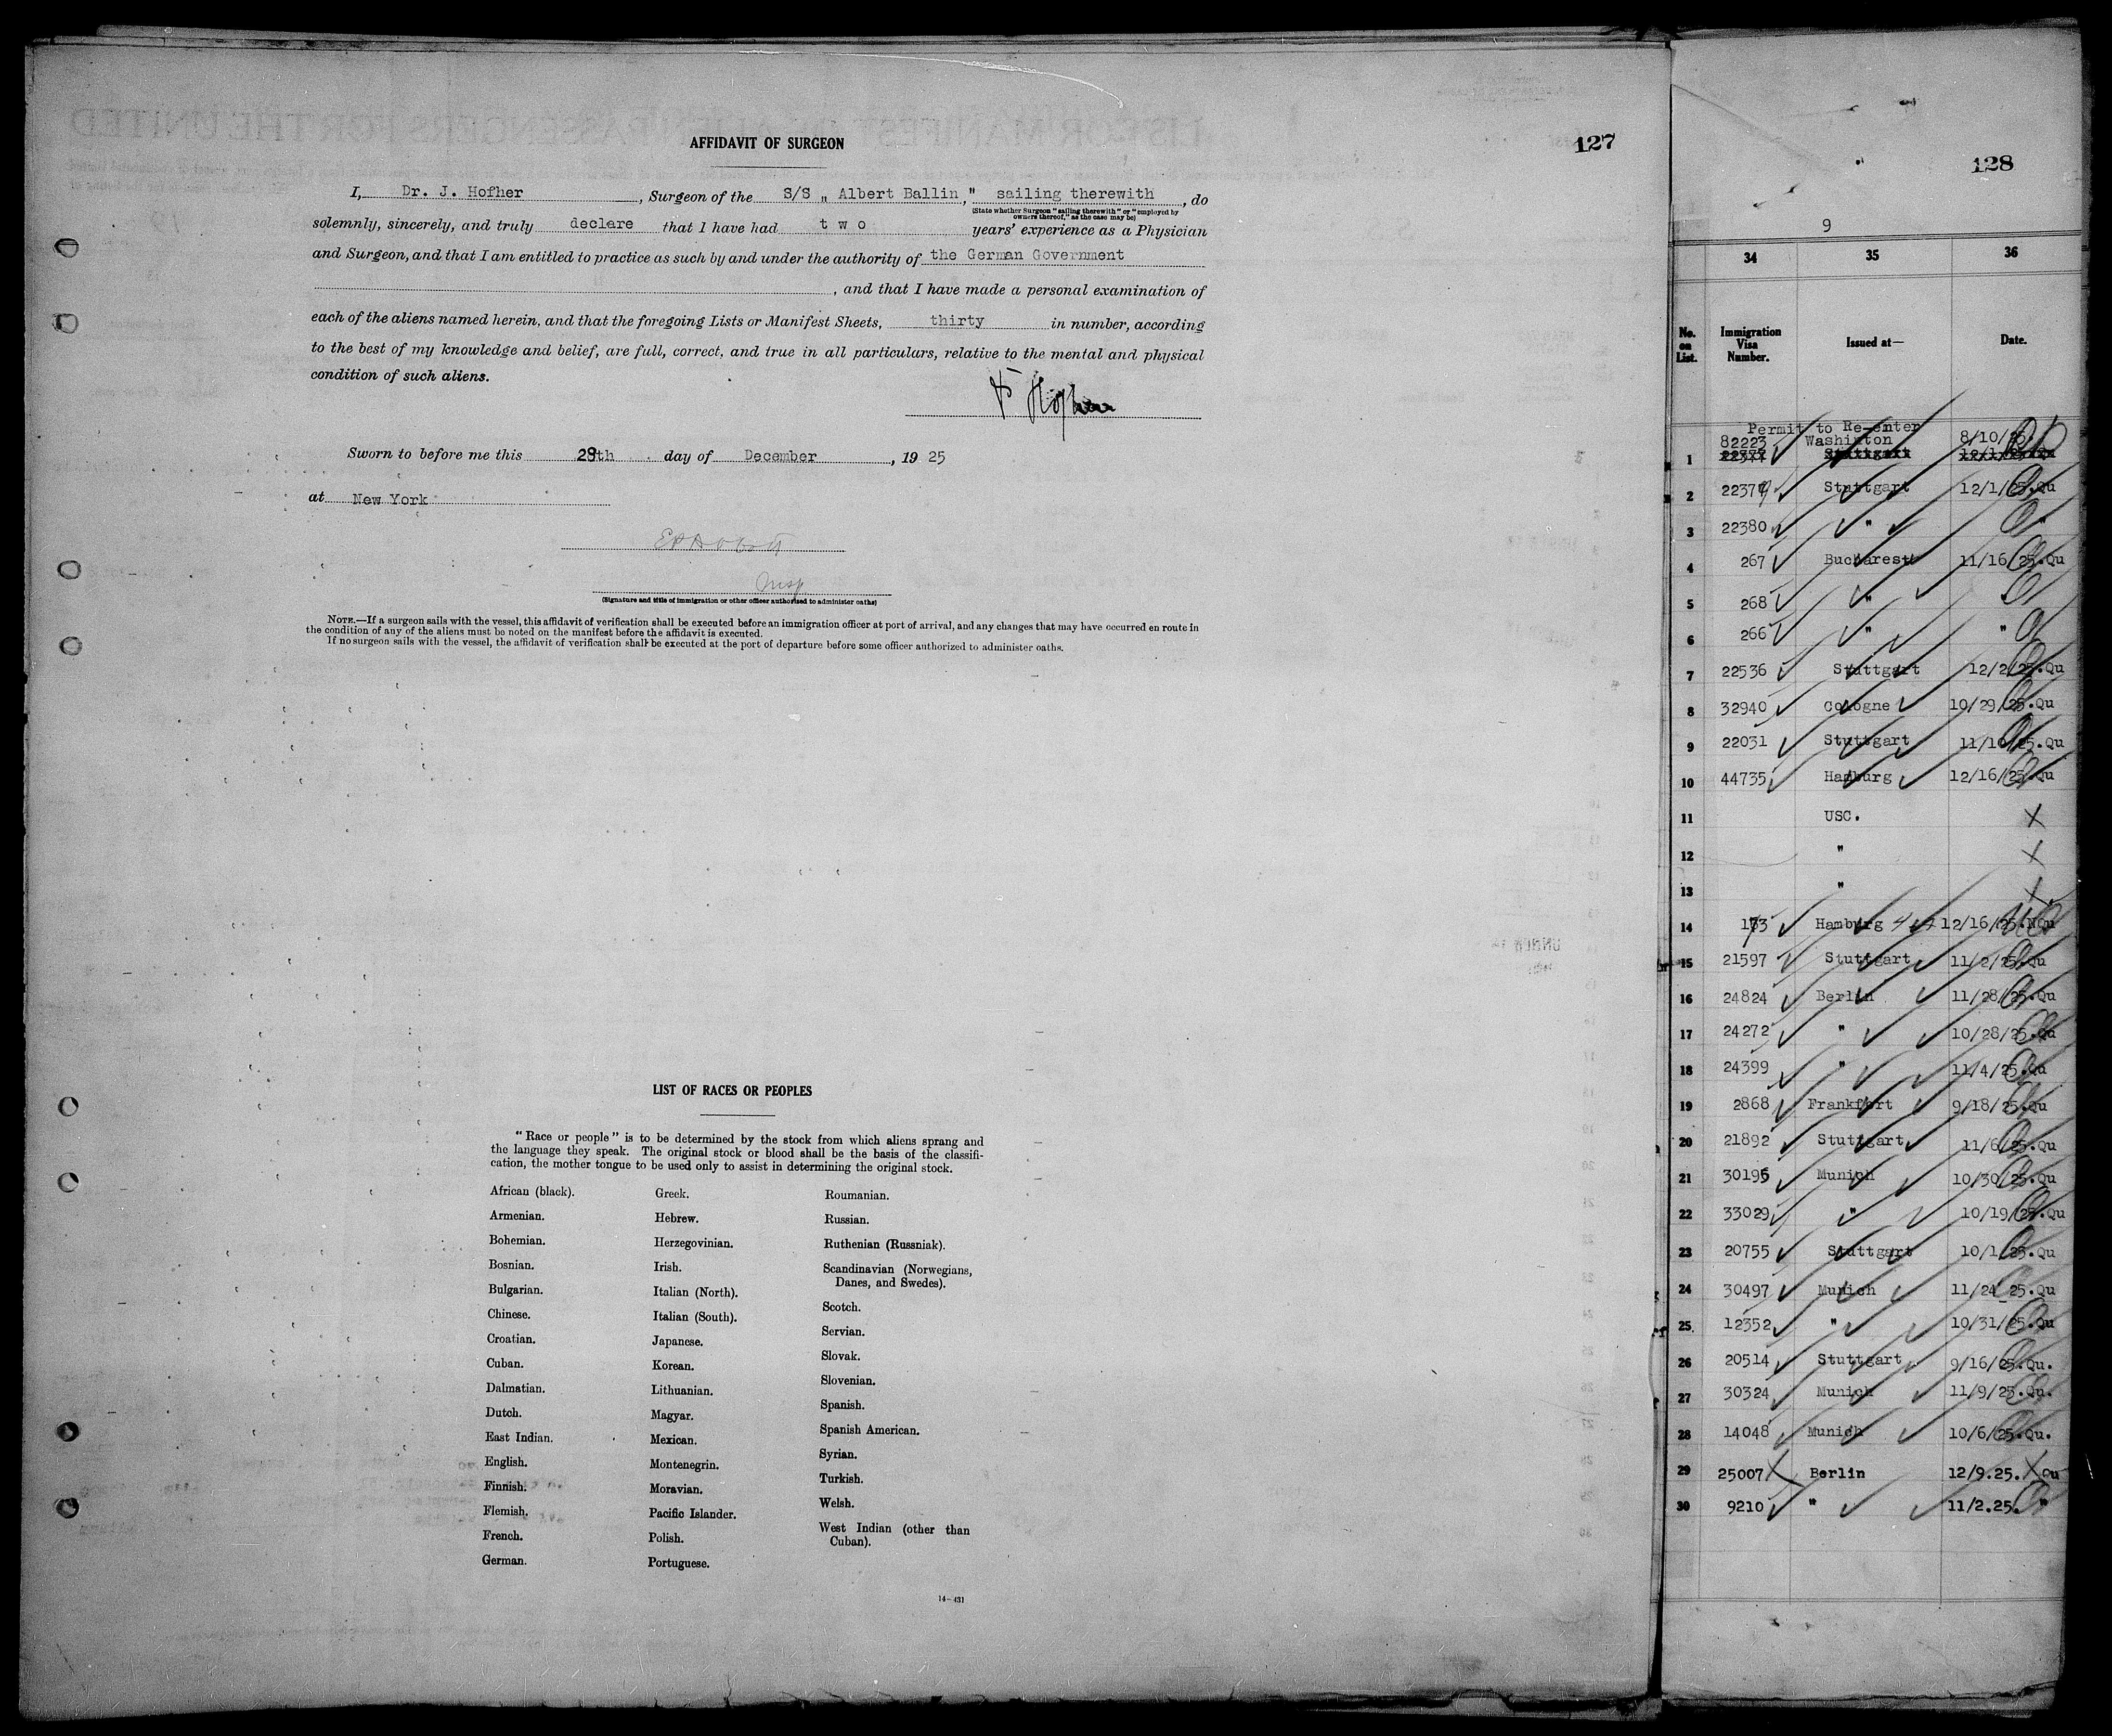 AFFIDAVIT OF SURGEON
127
I, Dr. J. Hofher, Surgeon of the S/S „ Albert Ballin," sailing therewith, do
(State whether Surgeon "sailing therewith" or "employed by
owners thereof," as the case may be)
solemnly, sincerely, and truly declare that I have had two years' experience as a Physician
and Surgeon, and that I am entitled to practice as such by and under the authority of the German Government
, and that I have made a personal examination of
each of the aliens named herein, and that the foregoing Lists or Manifest Sheets, thirty in number, according
to the best of my knowledge and belief, are full, correct, and true in all particulars, relative to the mental and physical
condition of such aliens.
Hofher
Sworn to before me this 28th day of December, 1925
at New York
Insp
(Signature and title of immigration or other officer authorized to administer oaths)
NOTE.—If a surgeon sails with the vessel, this affidavit of verification shall be executed before an immigration officer at port of arrival, and any changes that may have occurred en route in
the condition of any of the aliens must be noted on the manifest before the affidavit is executed.
If no surgeon sails with the vessel, the affidavit of verification shall be executed at the port of departure before some officer authorized to administer oaths.
LIST OF RACES OR PEOPLES
"Race or people" is to be determined by the stock from which aliens sprang and
the language they speak. The original stock or blood shall be the basis of the classifi-
cation, the mother tongue to be used only to assist in determining the original stock.
African (black).
Armenian.
Bohemian.
Bosnian.
Bulgarian.
Chinese.
Croatian.
Cuban.
Dalmatian.
Dutch.
East Indian.
English.
Finnish.
Flemish.
French.
German.
Greek.
Hebrew.
Herzegovinian.
Irish.
Italian (North).
Italian (South).
Japanese.
Korean.
Lithuanian.
Magyar.
Mexican.
Montenegrin.
Moravian.
Pacific Islander.
Polish.
Portuguese.
Roumanian.
Russian.
Ruthenian (Russniak).
Scandinavian (Norwegians,
Danes, and Swedes).
Scotch.
Servian.
Slovak.
Slovenian.
Spanish.
Spanish American.
Syrian.
Turkish.
Welsh.
West Indian (other than
Cuban).
14—431
128
9
34 35 36
No. on List. Immigration Visa Number. Issued at— Date.
Permit to Re-enter
1 82223 Washinton 8/10/25
22377 Stuttgart
2 22379 Stuttgart 12/1/25.Qu
3 22380 " "
4 267 Bucharest 11/16/25.Qu
5 268 " "
6 266 " "
7 22536 Stuttgart 12/2/25.Qu
8 32940 Cologne 10/29/25.Qu
9 22031 Stuttgart 11/10/25.Qu
10 44735 Hamburg 12/16/25.Qu
11 USC.
12 "
13 "
14 173 Hamburg 12/16/25.NQu
15 21597 Stuttgart 11/2/25.Qu
16 24824 Berlin 11/28/25.Qu
17 24272 " 10/28/25.Qu
18 24399 " 11/4/25.Qu
19 2868 Frankfort 9/18/25.Qu
20 21892 Stuttgart 11/6/25.Qu
21 30195 Munich 10/30/25.Qu
22 33029 " 10/19/25.Qu
23 20755 Stuttgart 10/1/25.Qu
24 30497 Munich 11/24 25.Qu
25 12352 " 10/31/25.Qu
26 20514 Stuttgart 9/16/25.Qu.
27 30324 Munich 11/9/25.Qu.
28 14048 Munich 10/6/25.Qu.
29 25007 Berlin 12/9.25. Qu
30 9210 " 11/2.25. "